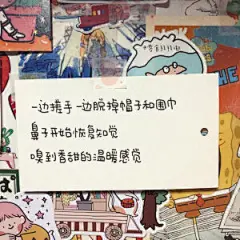 一边搓手一边脱掉帽子和围巾
鼻子开始恢复知觉
嗅到香甜的温暖感觉